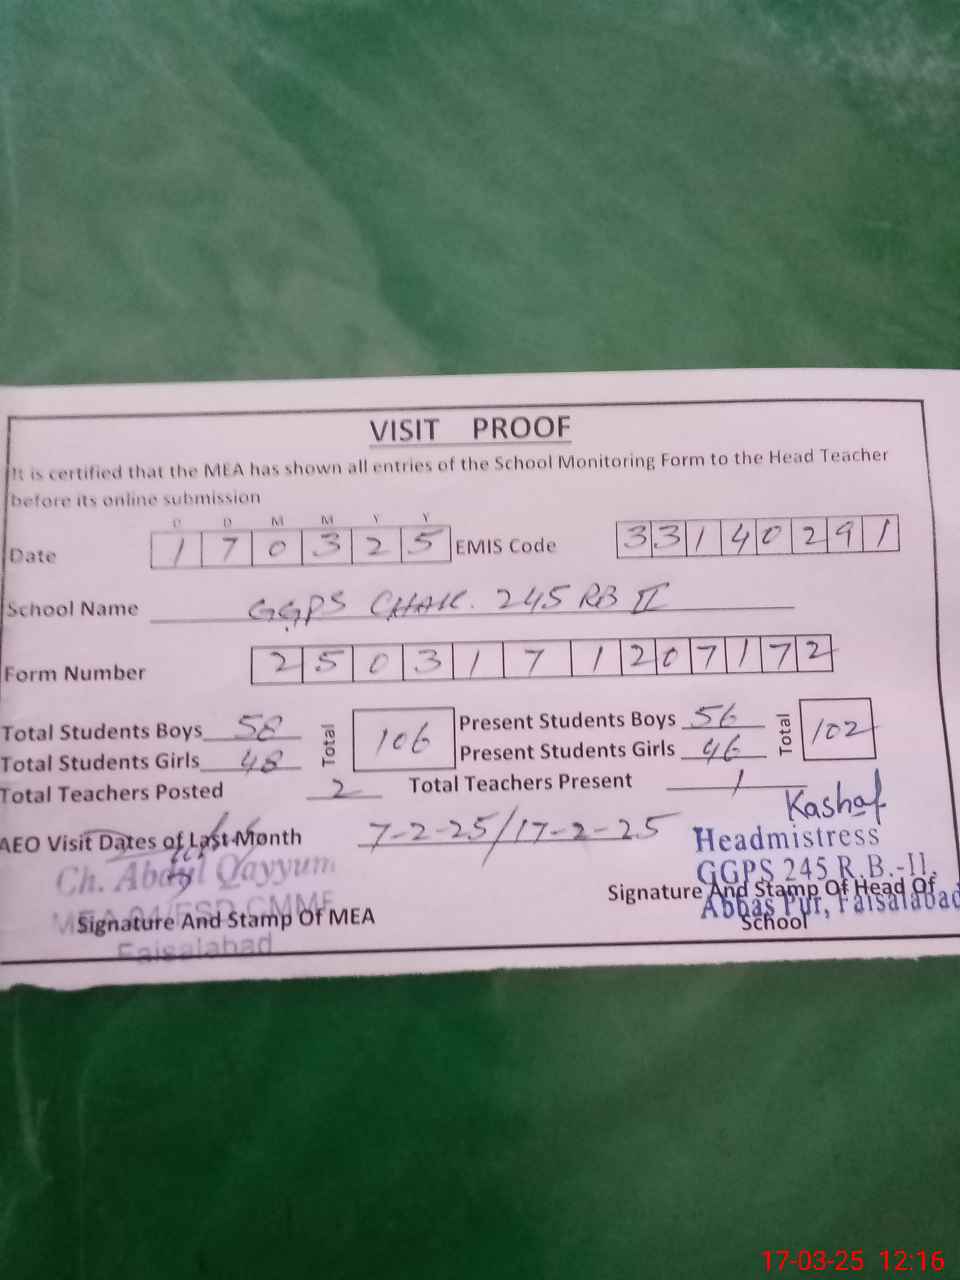 VISIT PROOF
It is certified that the MEA has shown all entries of the School Monitoring Form to the Head Teacher
before its online submission
D D M M Y Y
Date 1 7 0 3 2 5 EMIS Code 3 3 1 4 0 2 9 1
School Name GGPS CHAK. 245 RB II
Form Number 2 5 0 3 1 7 1 2 0 7 1 7 2
Total Students Boys 58 Total 106 Present Students Boys 56 Total 102
Total Students Girls 48 Present Students Girls 46
Total Teachers Posted 2 Total Teachers Present 1
Kashaf
AEO Visit Dates of Last Month 7-2-25/17-2-25
Headmistress
Ch. Abdul Qayyum
GGPS 245 R.B.-II,
Signature And Stamp Of Head Of
School
Abbas Pur, Faisalabad
Signature And Stamp Of MEA
Faisalabad
17-03-25 12:16